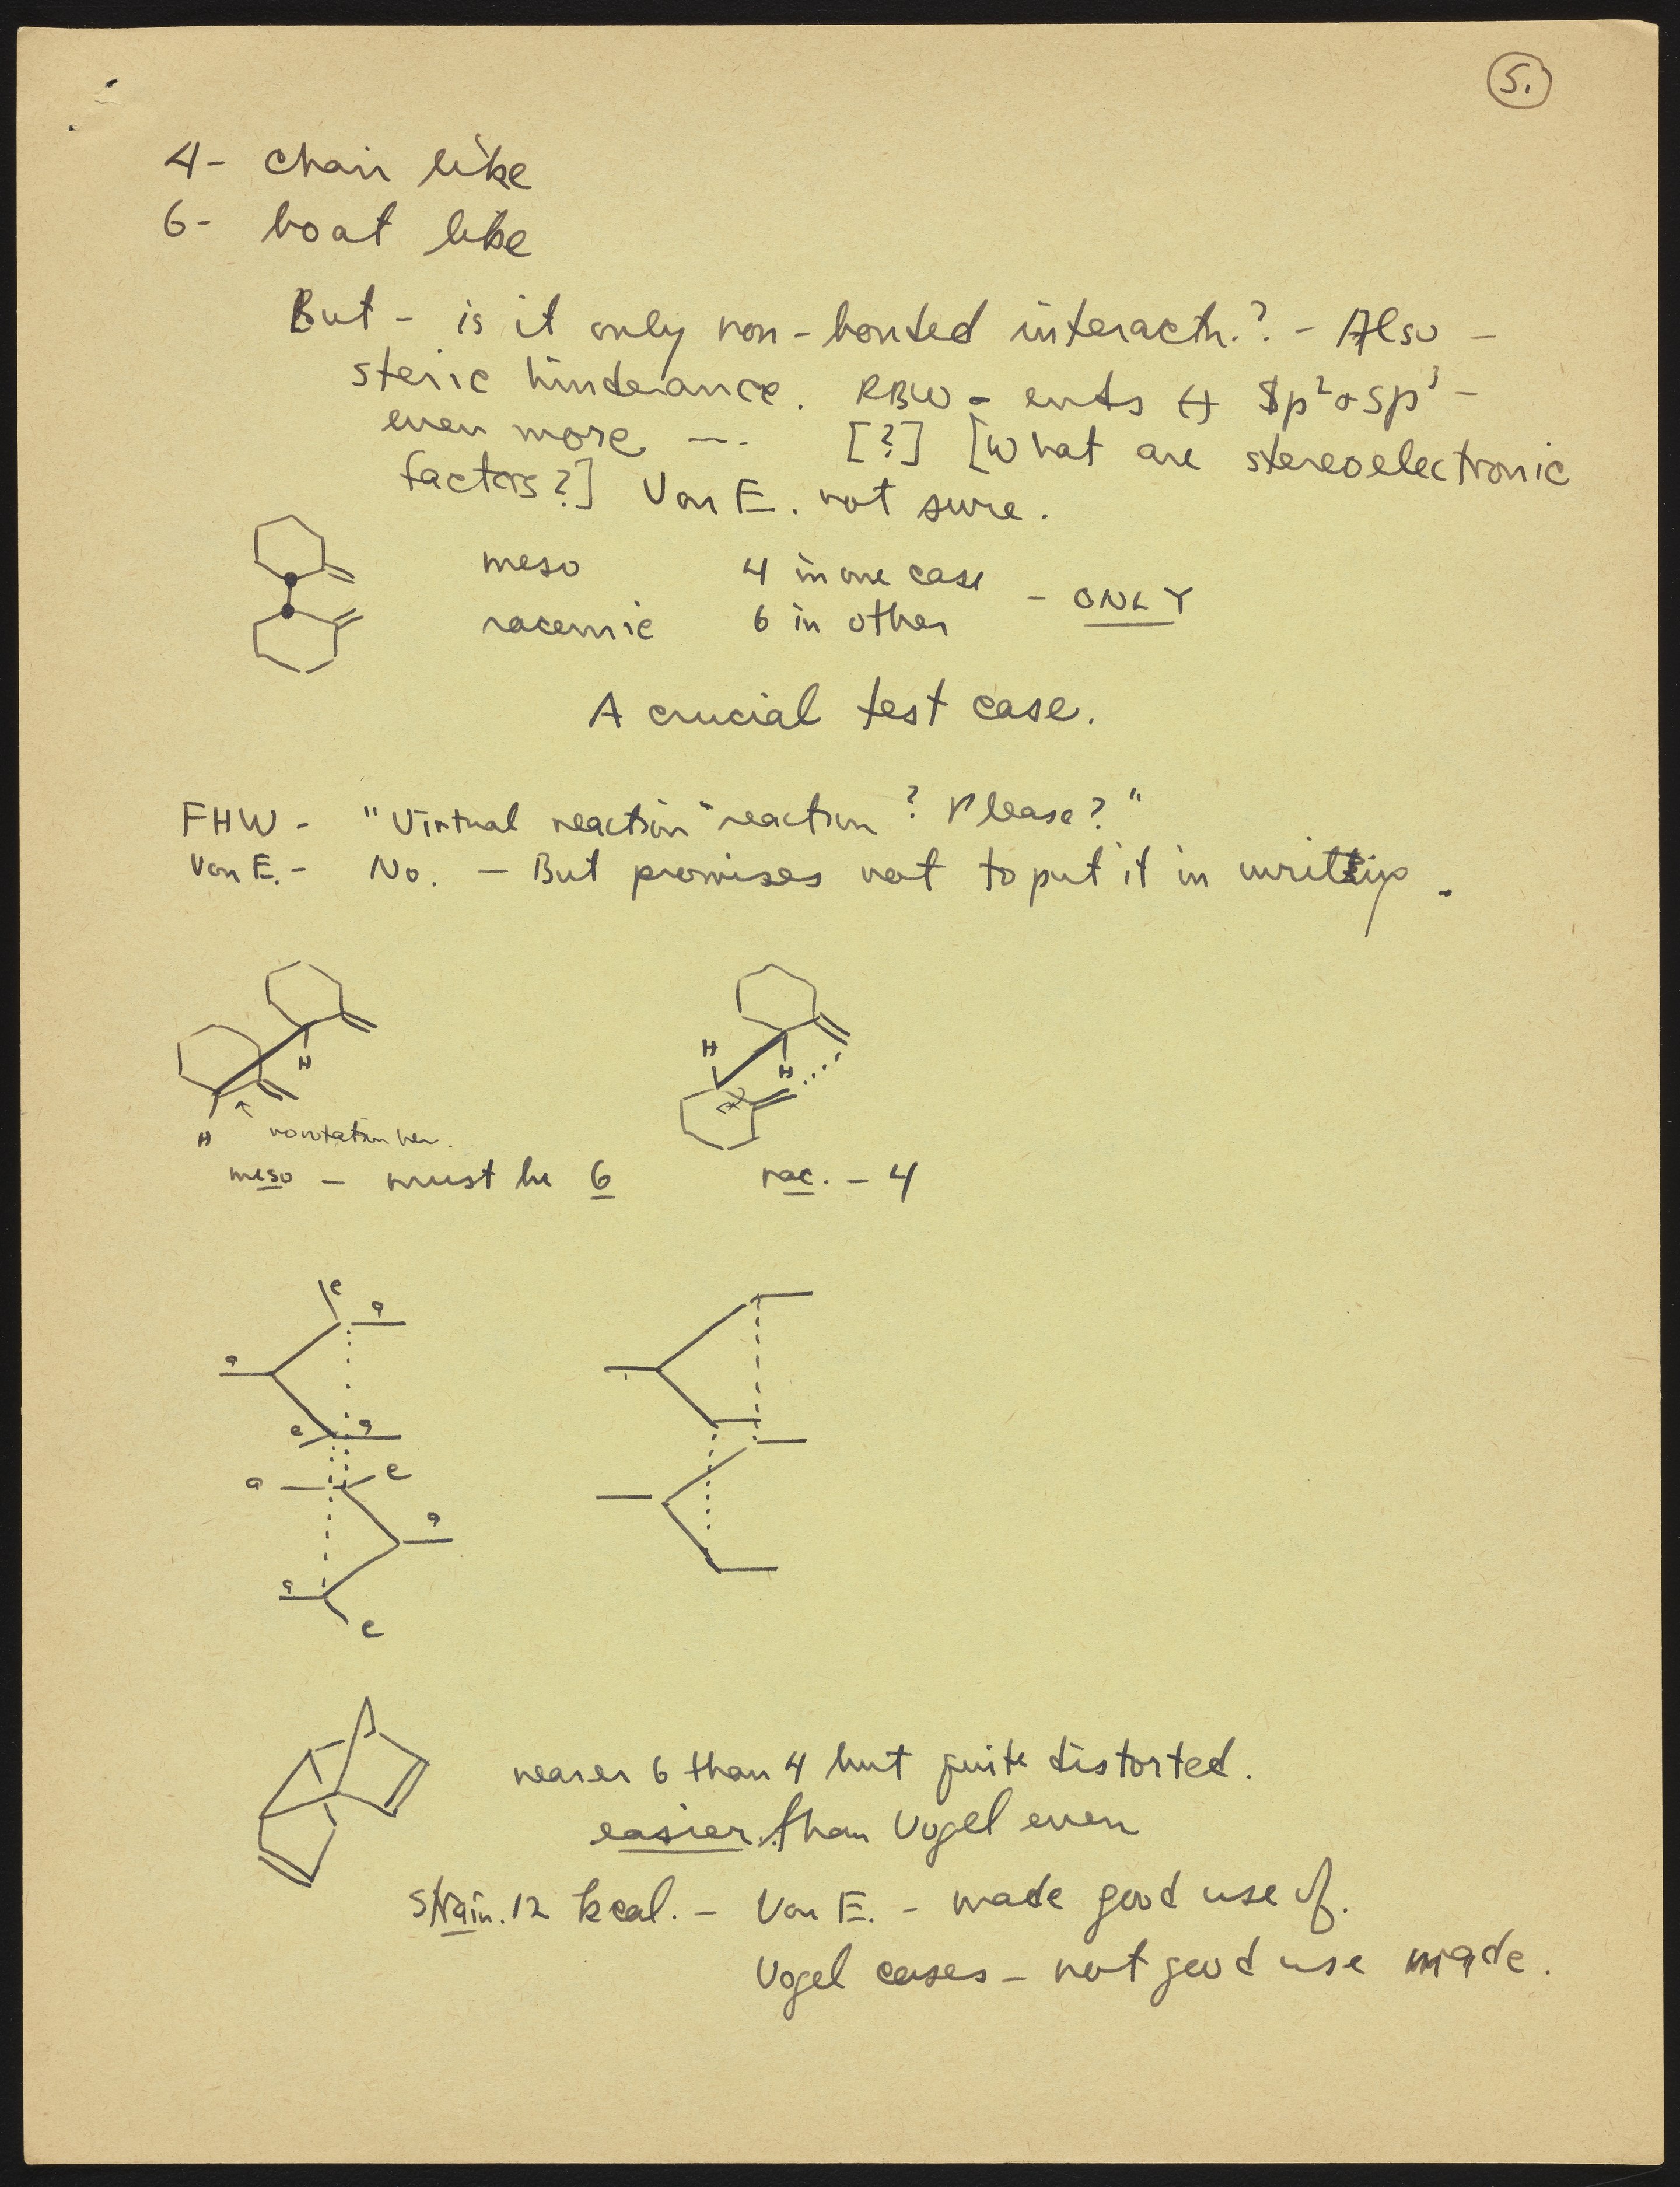 5.
4- chair like
6- boat like
But - is it only non-bonded interactn.? - Also -
steric hinderance. RBW - ends ↔ sp² or sp³ -
even more --- [?] [What are stereoelectronic
factors?] Von E. not sure.
meso 4 in one case
- ONLY
racemic 6 in other
A crucial test case.
FHW - "Virtual reaction" reaction? Please?"
Von E. - No. - But promises not to put it in writing.
H
H
H
H
no rotation here.
meso - must be 6
rac. - 4
e
a
a
e a
a e
a
a
e
nearer 6 than 4 but quite distorted.
easier than Vogel even
Strain. 12 kcal. - Von E. - made good use of.
Vogel cases - not good use made.